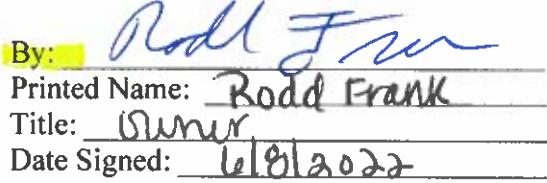 By: Rodd Fran
Printed Name: Rodd Frank
Title: Owner
Date Signed: 6/8/2022